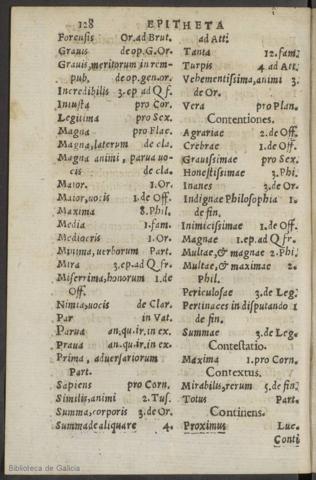 128 EPITHETA
Forensis Or.ad Brut.
Grauis de op.G.Or.
Grauis, meritorum in rem-
pub. de op.gen.or.
Incredibilis 3.ep ad Q f.
Iniusta pro Cor.
Legitima pro Sex.
Magna pro Flac.
Magna, laterum de cla.
Magna animi, parua uo-
cis de cla.
Maior. 1.Or.
Maior, uocis 1.de Off.
Maxima 8.Phil.
Media 1.fam.
Mediocris 1.Or.
Minima, uerborum Part.
Mira 3.ep.ad Q fr.
Miserrima, honorum 1.de
Off.
Nimia, uocis de Clar.
Par in Vat.
Parua an.qu.ir.in ex.
Praua an.qu.ir.in ex.
Prima, aduersariorum
Part.
Sapiens pro Corn.
Similis, animi 2.Tus.
Summa, corporis 3.de Or.
Summa de aliquare 4.
ad Att.
Tanta 12.fam.
Turpis 4 ad Att.
Vehementissima, animi 3.
de Or.
Vera pro Plan.
Contentiones.
Agrariae 2.de Off.
Crebrae 1.de Off.
Grauissimae pro Sex.
Honestissimae 3.Phi.
Inanes 3.de Or.
Indignae Philosophia 1.
de fin.
Inimicissimae 1.de Off.
Magnae 1.ep.ad Q fr.
Multae, & magnae 2.Phi.
Multae, & maximae 2.
Phil.
Periculosae 3.de Leg.
Pertinaces in disputando 1
de fin.
Summae 3.de Leg.
Contestatio.
Maxima 1.pro Corn.
Contextus.
Mirabilis, rerum 5.de fin.
Totus Part.
Continens.
Proximus Luc.
Conti
Biblioteca de Galicia